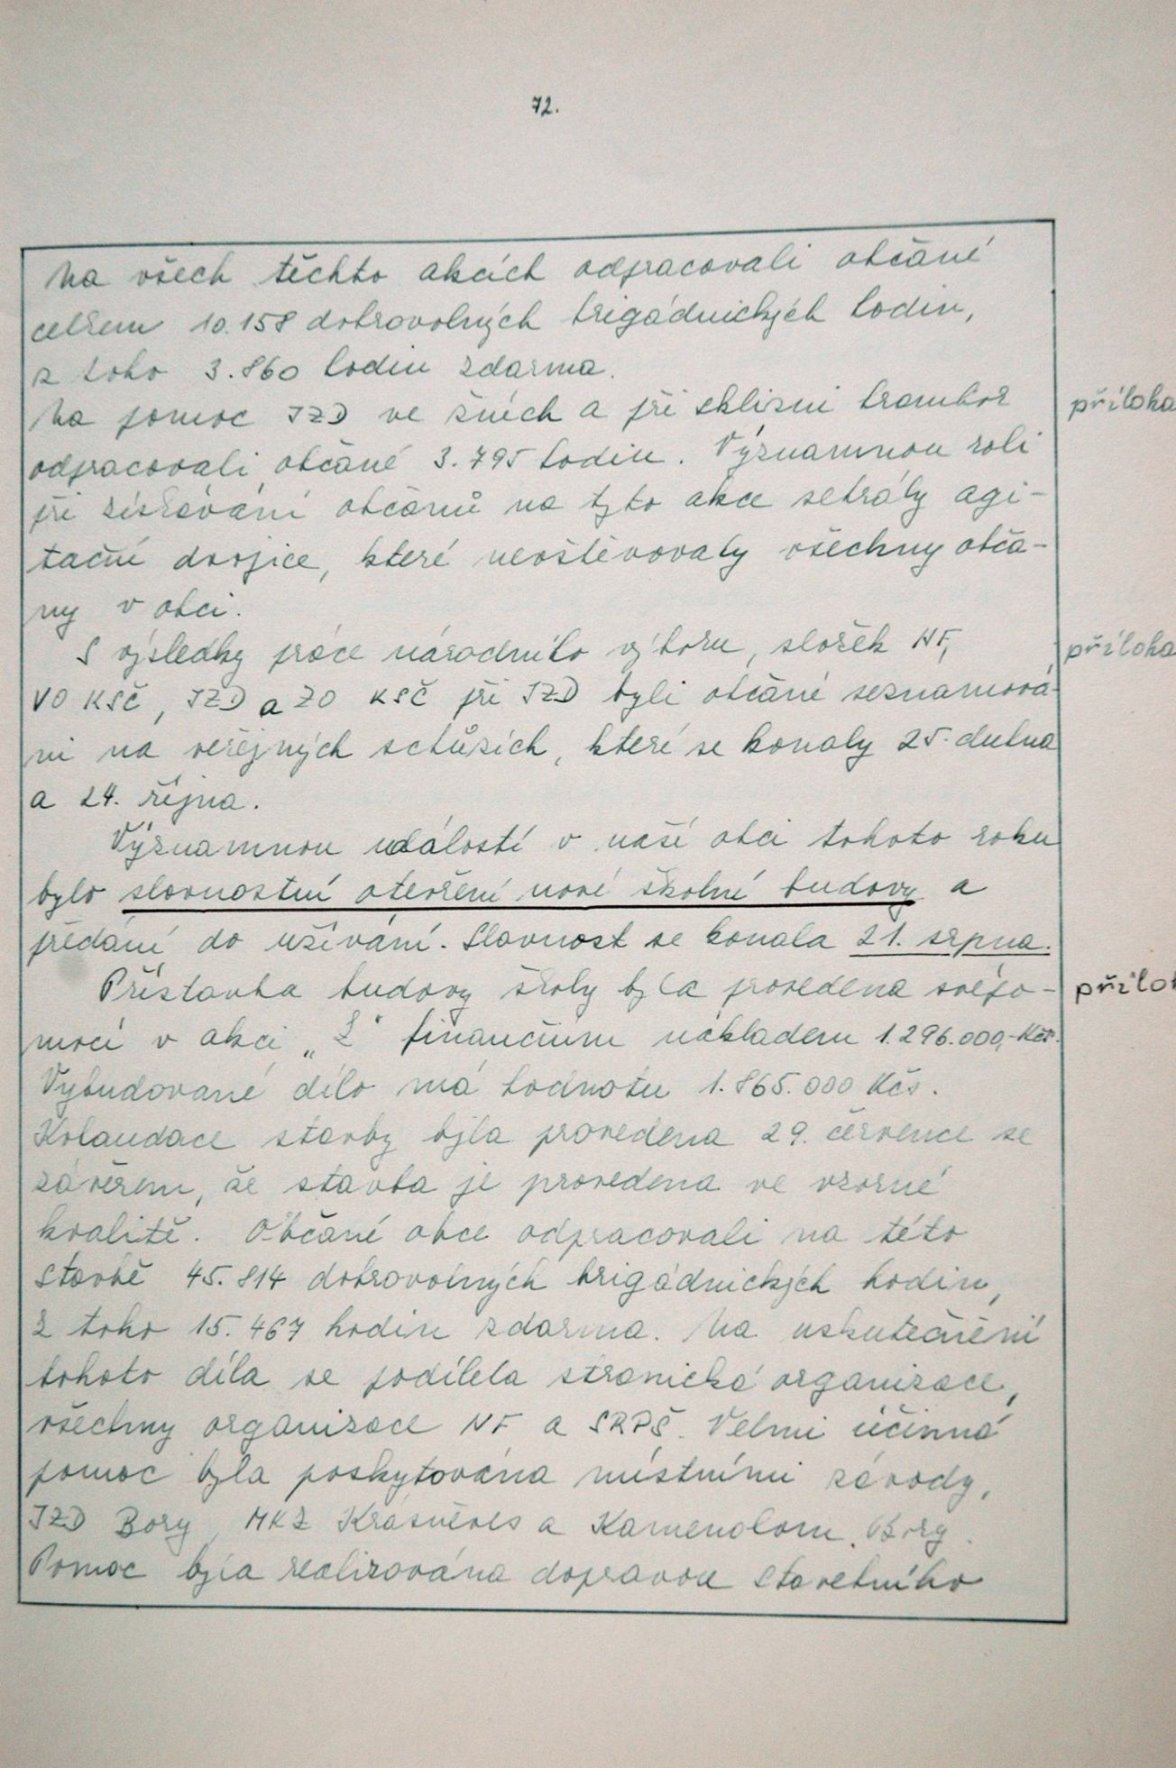 72.
Na všech těchto akcích odpracovali občané
celkem 10.158 dobrovolných brigádnických hodin,
z toho 3.860 hodin zdarma.
Na pomoc JZD ve žních a při sklizni brambor
příloha
odpracovali občané 3.795 hodin. Významnou roli
při získávání občanů na tyto akce sehrály agi-
tační dvojice, které navštěvovaly všechny obča-
ny v obci.
S výsledky práce národního výboru, složek NF,
příloha
VO KSČ, JZD a ZO KSČ při JZD byli občané seznamová-
ni na veřejných schůzích, které se konaly 25. dubna
a 24. října.
Významnou událostí v naší obci tohoto roku
bylo slavnostní otevření nové školní budovy a
předání do užívání. Slavnost se konala 21. srpna.
Přístavba budovy školy byla provedena svépo-
příloh
mocí v akci „Z" finančním nákladem 1.296.000,-Kčs.
Vybudované dílo má hodnotu 1.865.000 Kčs.
Kolaudace stavby byla provedena 29. července se
závěrem, že stavba je provedena ve vzorné
kvalitě. Občané obce odpracovali na této
stavbě 45.814 dobrovolných brigádnických hodin,
z toho 15.467 hodin zdarma. Na uskutečnění
tohoto díla se podílela stranická organizace,
všechny organizace NF a SRPŠ. Velmi účinná
pomoc byla poskytována místními závody,
JZD Bory, MKZ Krásněves a Kamenolom Bory.
Pomoc byla realizována dopravou stavebního